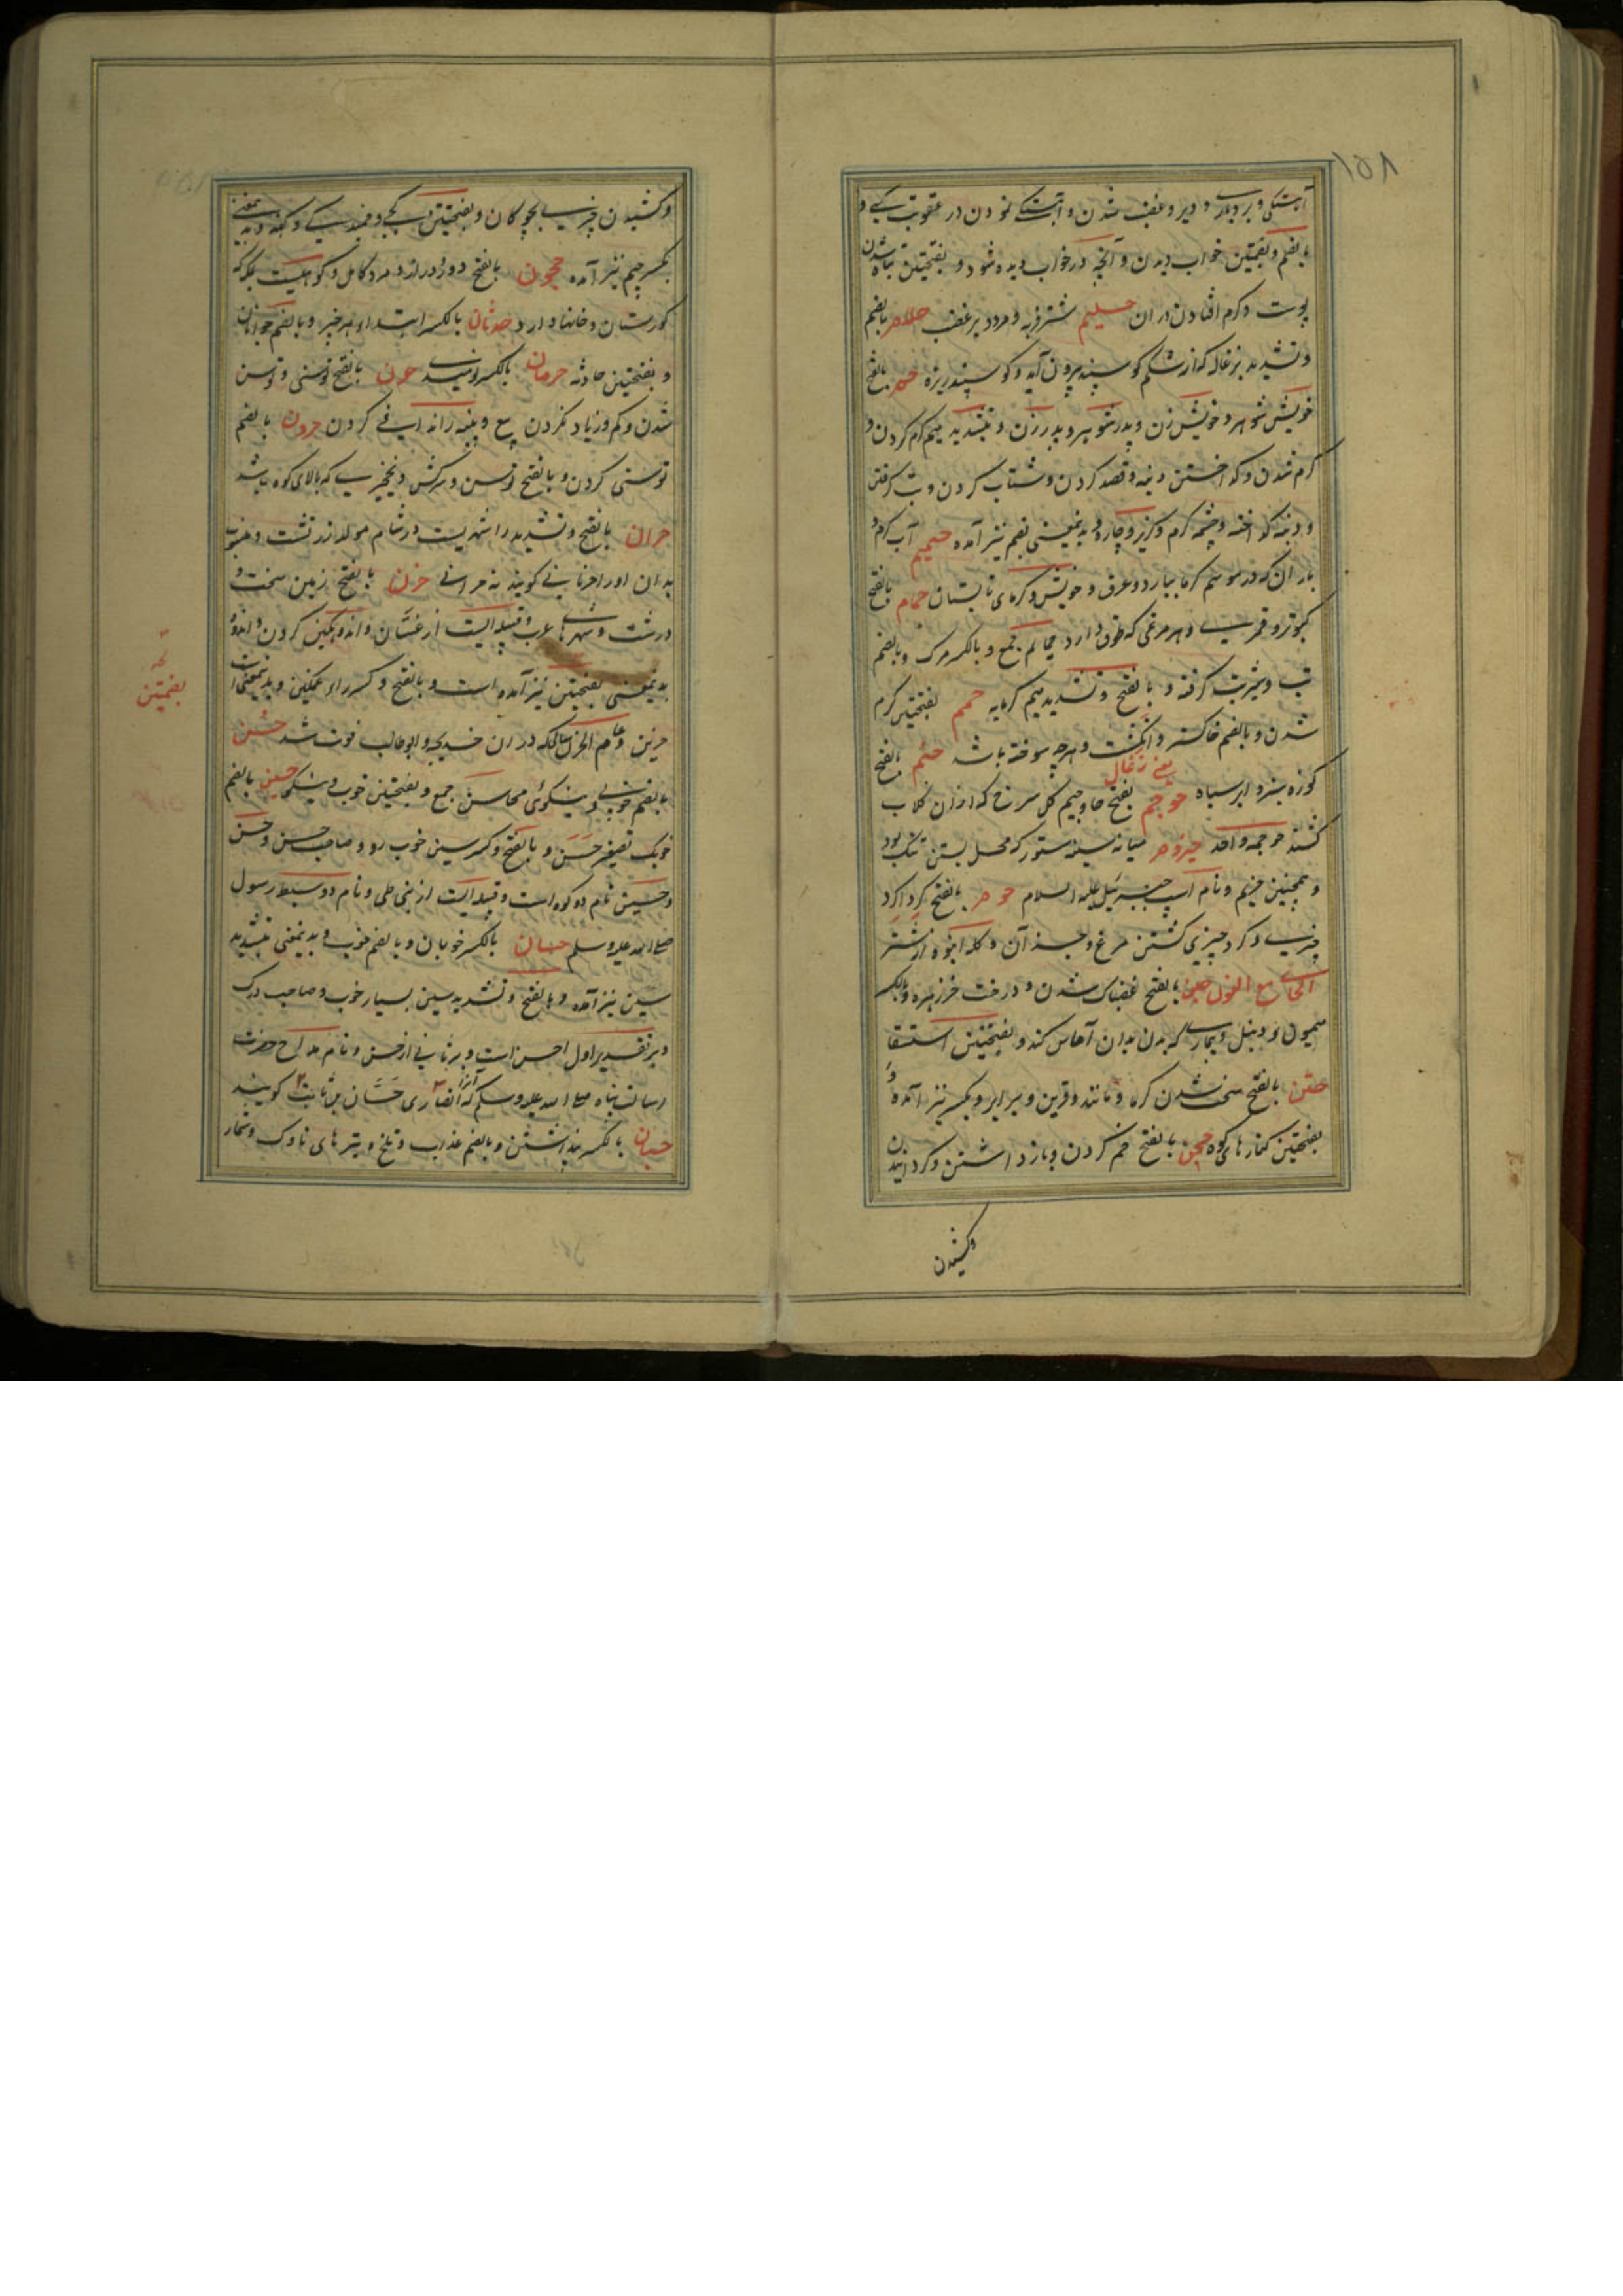 ۱۵۸
آهستگی و بردباری و دیر و غضب شدن و آهستگی نمودن در عقوبت کسی و
بالضم و بضمتین خواب دیدن و آنچه در خواب دیده شود و بفتحتین تباه شدن
پوست و کرم افتادن در آن حلیم شتر فربه و مرد دیر غضب حلام بالضم
و تشدید بزغاله که از شکم گوسپند بیرون آید و گوسپند ریزه حم بالفتح
خویش شوهر و خویش زن و پدر شوهر و پدر زن و بتشدید میم گرم کردن و
گرم شدن و گداختن دنبه و قصد کردن و شتاب کردن و تب گرفتن
و دنبه گداخته و چشمه گرم و گریز و چاره و بدینمعنی بضم نیز آمده حمیم آب گرم و
باران که در موسم گرما ببارد و عرق و خویش و گرمای تابستان حمام بالفتح
کبوتر و قمری و هر مرغی که طوق دارد حمائم جمع و بالکسر مرگ و بالضم
تب و شریت گرفته و بالفتح و تشدید میم گرمابه حمم بفتحتین گرم
شدن و بالضم خاکستر و انگشت و هرچه سوخته باشد حنتم بالفتح
یعنی زغال
کوزه سبز و ابر سیاه حوجم بفتح حا و جیم گل سرخ که از آن گلاب
کشند حوجمه واحد حیزوم میانه سینه ستور که محل بستن تنگ بود
و همچنین حزیم و نام اسپ جبرئیل علیه السلام حوم بالفتح گرداگرد
چیزی و گرد چیزی گشتن مرغ و جز آن و گله انبوه از شتر
الحاء مع النون حبن بالفتح غضبناک شدن و درخت خرزهره و بالکسر
میمون و دنبل و بیماری که بدن بدان آماس کند و بفتحتین استسقا
حتن بالفتح سخت شدن گرما و مانند و قرین و برابر و بکسر نیز آمده و
بفتحتین کنارهای کوه حجن بالفتح خم کردن و باز داشتن و گردانیدن
وکشیدن
وکشیدن چیزی بچوگان و بفتحتین کجی و خمیدگی و کنه و بدینمعنی
بکسر جیم نیز آمده حجون بالفتح دور و دراز و مرد کامل و کوهیست بمکه که
گورستان و خانها دارد حدثان بالکسر ابتداء هر چیز و بالضم جوانان
و بفتحتین حادثه حرمان بالکسر نومیدی حرن بالفتح توسنی و توسن
شدن و کم و زیاد نکردن بیع و پنبه را ندافی کردن حرون بالضم
توسنی کردن و بالفتح توسن و سرکش و نخجیری که بالای کوه باشد
حران بالفتح و تشدید را شهریست در شام مولد زردشت و منسوب
بدان او را حرنانی گویند نه حرانی حزن بالفتح زمین سخت و
درشت و شهرهای عرب و قبیله ایست از غسّان و اندوهگین کردن و اندوه
بدینمعنی بفتحتین نیز آمده است و بالفتح و کسر زاء غمگین و بدینمعنی است
بضمتین
حزین و عام الحزن سالی که در آن خدیجه و ابو طالب فوت شد حُسن
بالضم خوبی و نیکوئی محاسن جمع و بفتحتین خوب و نیکو حسین بالضم
خوبک تصغیر حَسَن و بالفتح و کسر سین خوب رو و صاحب حسن و حسن
و حسین نام دو کوه است و قبیله ایست از بنی طی و نام دو سبط رسول
صلی الله علیه و سلم حسان بالکسر خوبان و بالضم خوب و بدینمعنی بتشدید
سین نیز آمده و بالفتح و تشدید سین بسیار خوب و صاحب درک
و بر تقدیر اول از حسن است و بر ثانی از حس و نام مداح حضرت
رسالت پناه صلی الله علیه و سلم که او را انصاری حَسَّان بن ثابت گویند
حسبان بالکسر پنداشتن و بالضم عذاب و ملخ و تیرهای ناوک و شمار